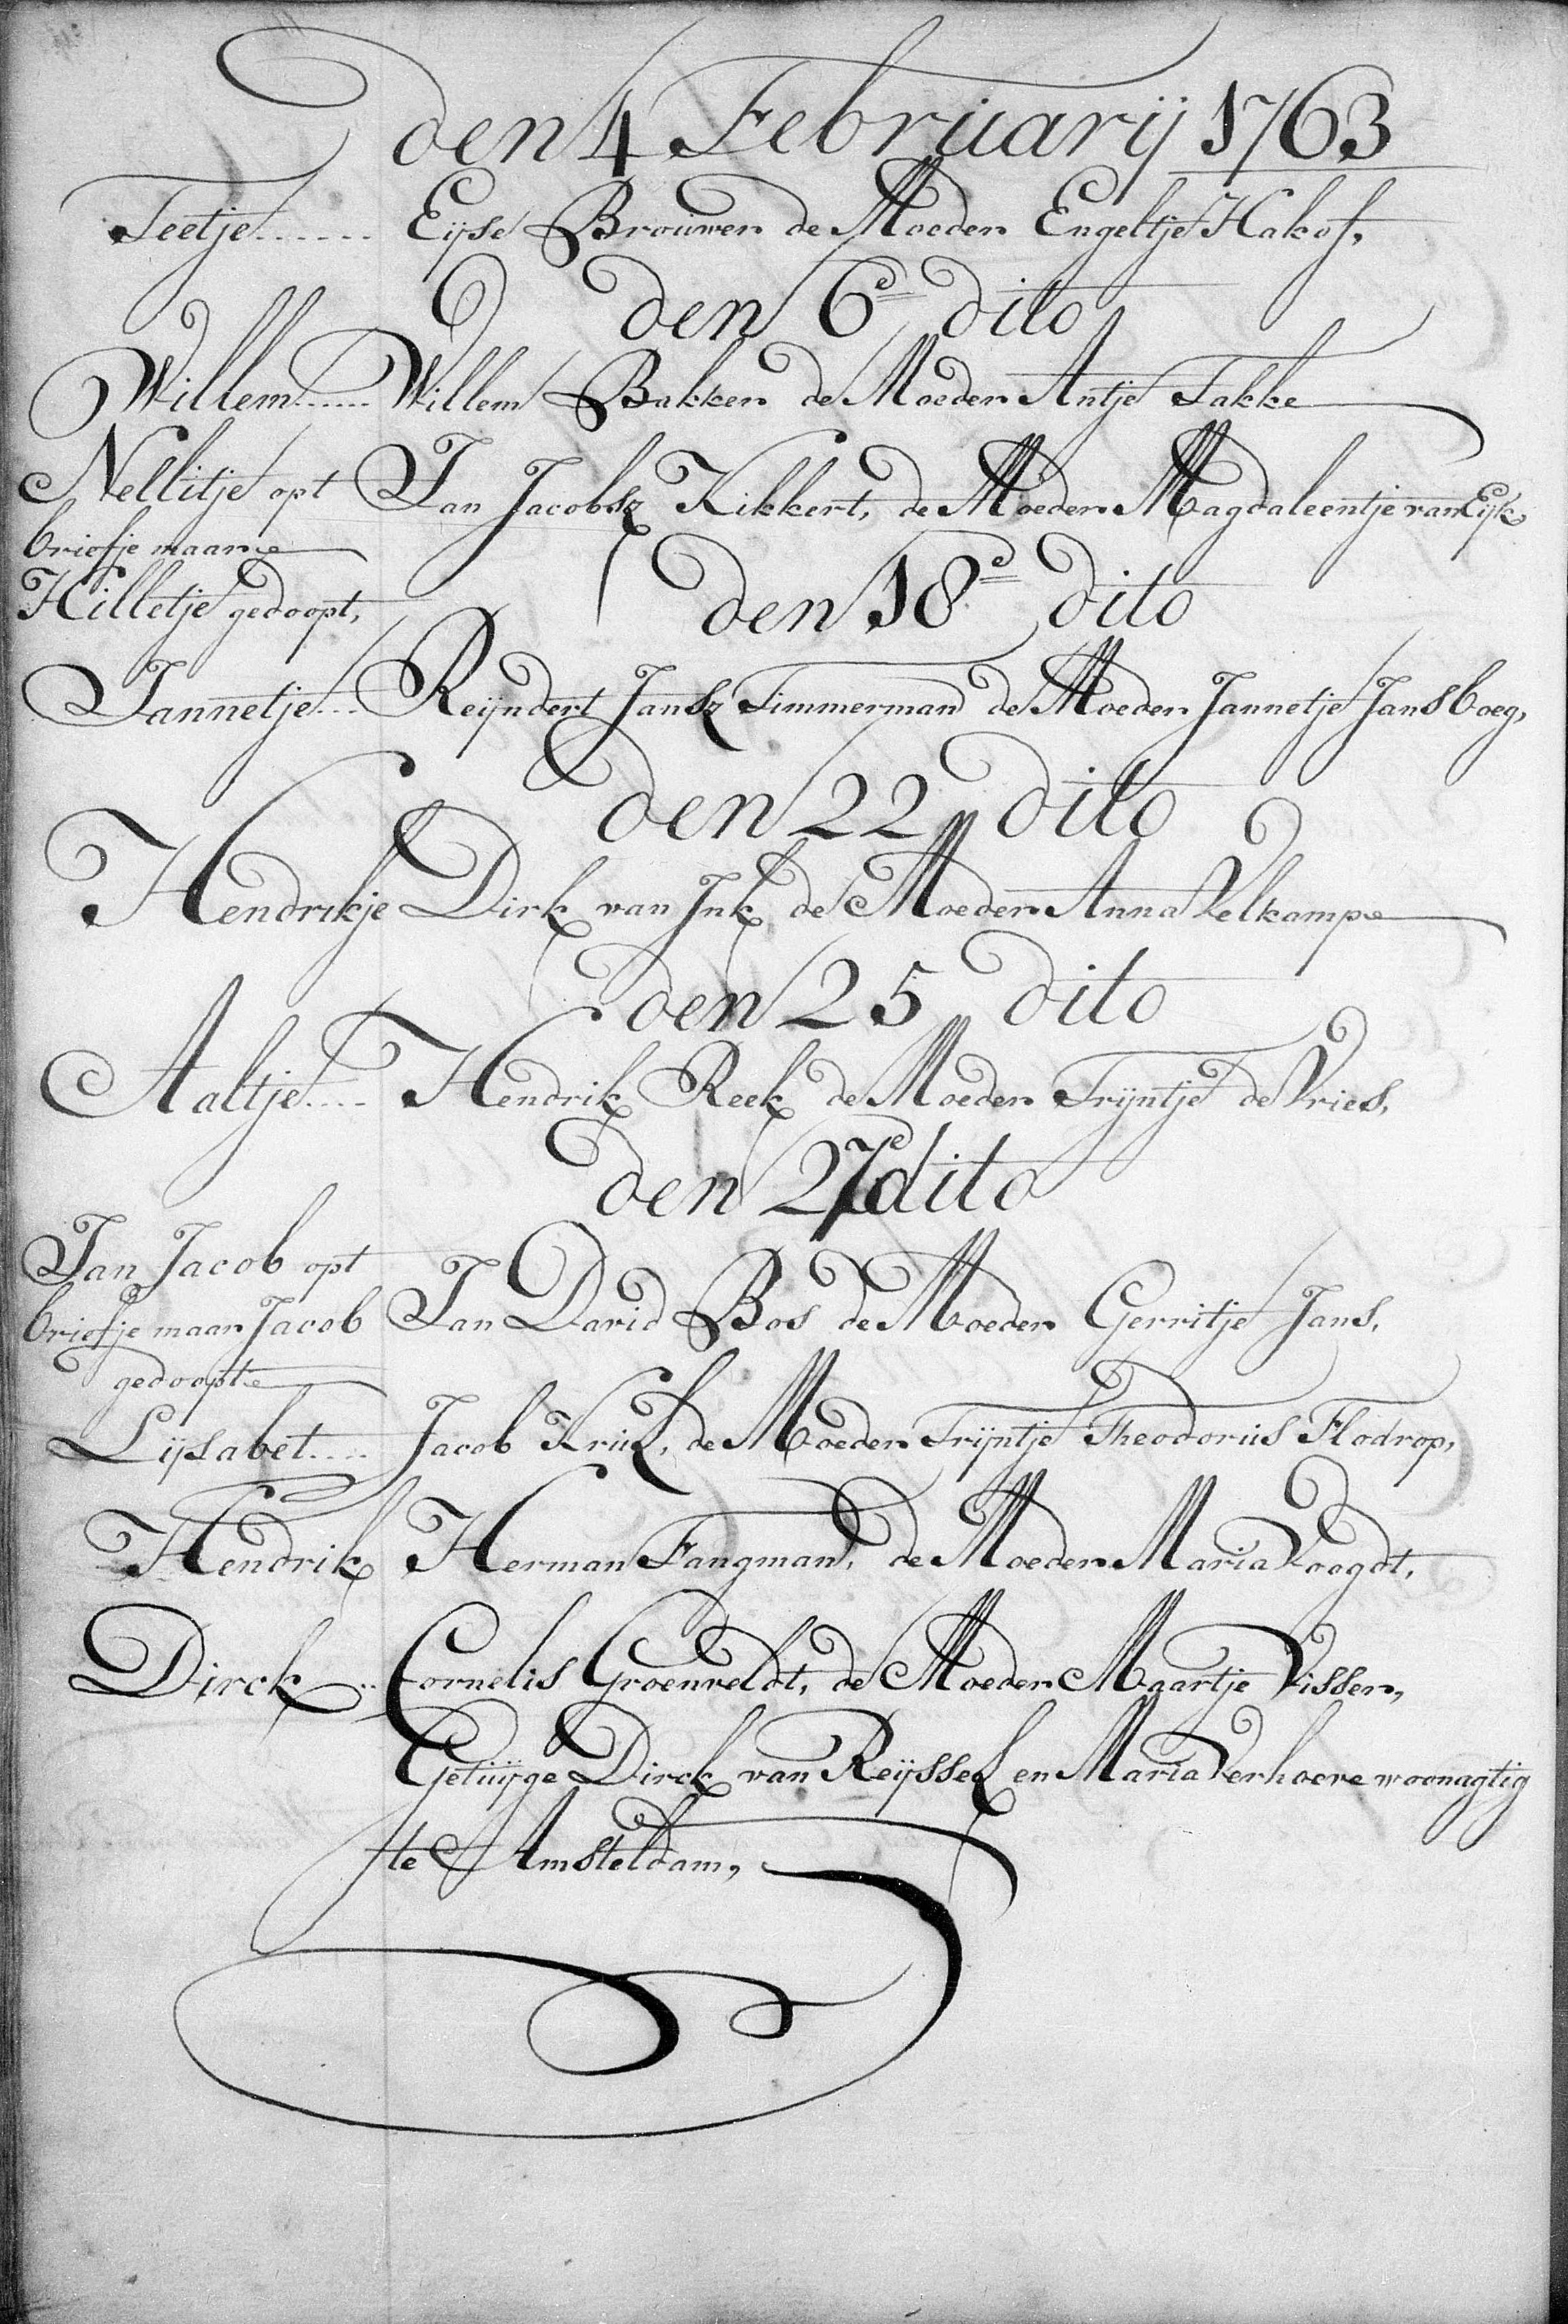 den 4 Februarij 1763
Teetje...... Eijse Brouwer de Moeder Engeltje Hakof,
den 6e dito
Willem...... Willem Bakker de Moeder Antje Takke
Nellitje opt Jan Jacobsz Kikkert, de Moeder Magdaleentje van Eijk
briefje maar
den 18e dito
Hilletje gedoopt,
Jannetje... Reijndert Jansz Timmerman de Moeder Jannetje Jans boeg,
den 22 dito
Hendrikje Dirk van Ink de Moeder Anna Velkamp
den 25 dito
Aaltje.... Hendrik Reek de Moeder Trijntje de Vries,
den 27e dito
Jan Jacob opt
briefje maar Jacob Jan David Bos de Moeder Gerritje Jans,
gedoopt
Lijsabet.... Jacob Kruk, de Moeder Trijntje Theodorus Flodrop,
Hendrik Herman Fangman, de Moeder Maria Voogdt,
Dirck .. Cornelis Groenveldt, de Moeder Maartje Visser,
Getuijge Dirck van Reijssel en Maria Verhoeve woonagtig
te Amsteldam,